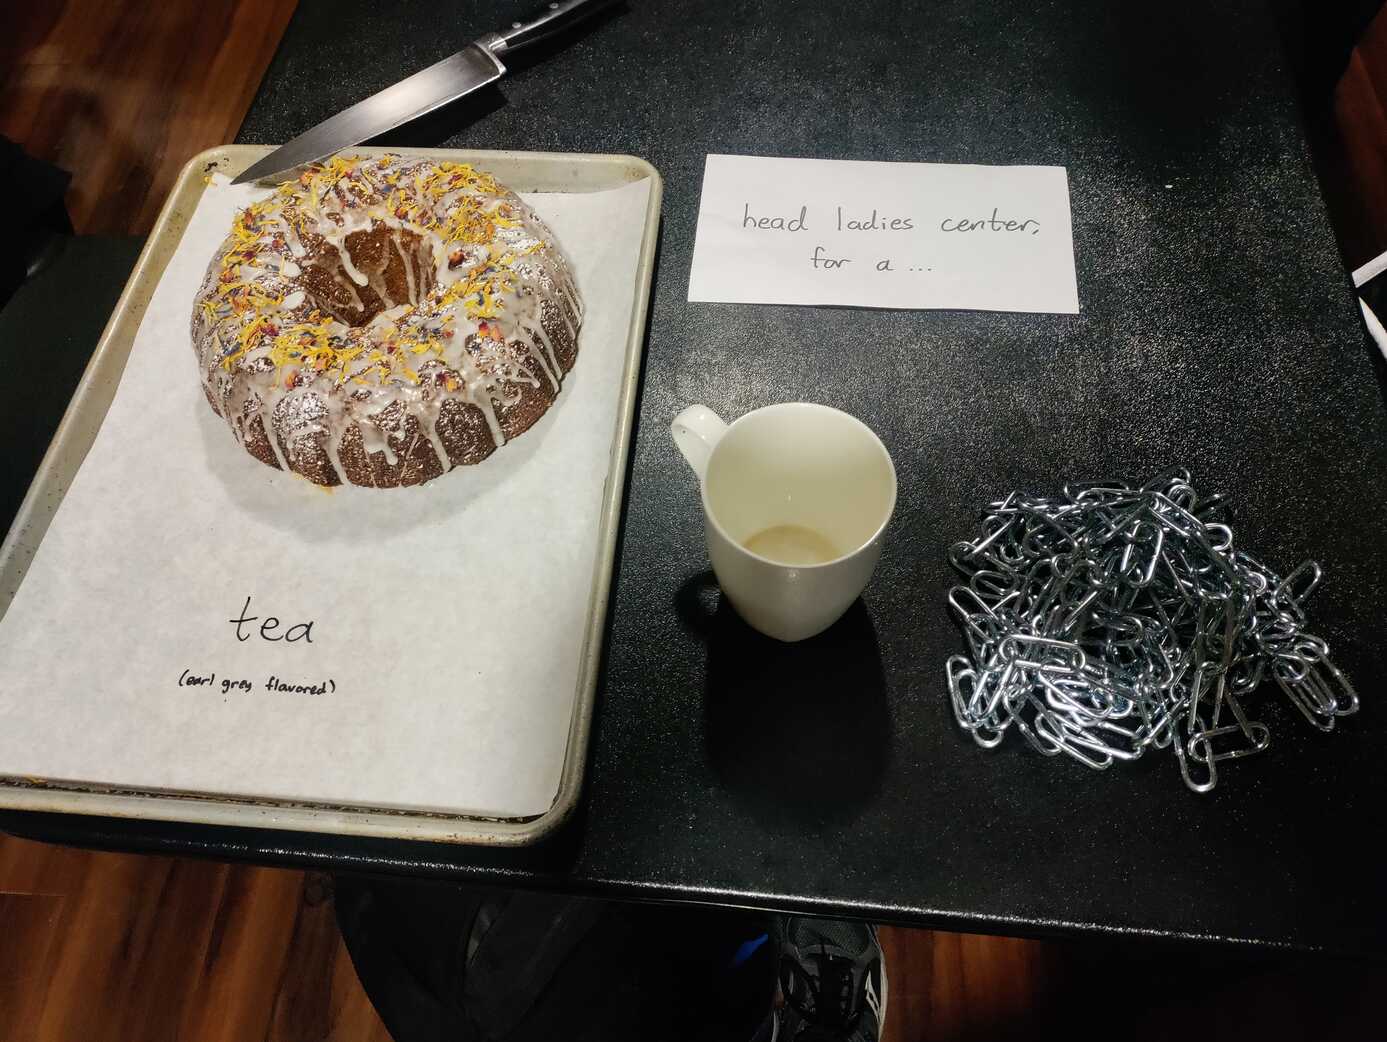 head ladies center,
for a ...
tea
(earl grey flavored)